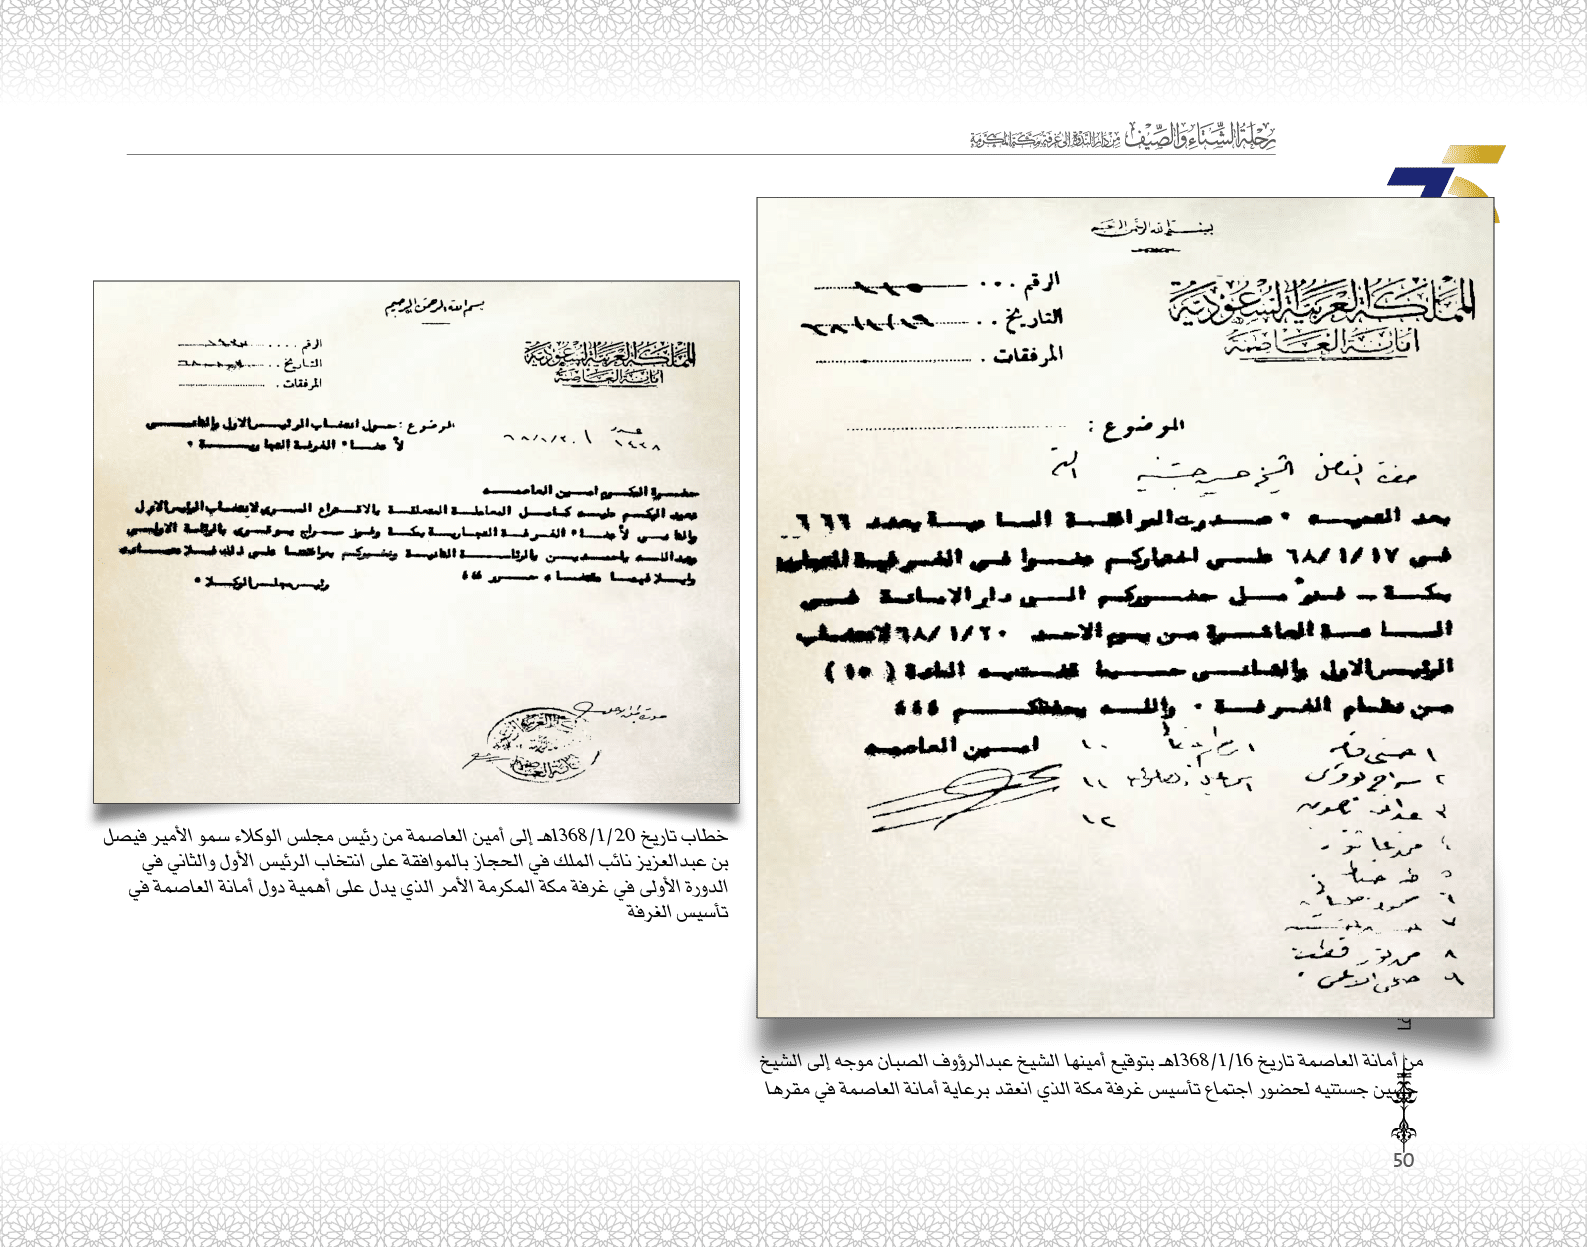 رحلة الشتاء والصيف من دار الندوة إلى غرفة مكة المكرمة
بسم الله الرحمن الرحيم
المملكة العربية السعودية
أمانة العاصمة
الرقم
التاريخ
المرفقات
الموضوع :
حضرة الفاضل الشيخ حسين جستنيه
بعد التحيه ٠ صدرت الموافقة السامية بعدد ٦٦٦
فى ٦٨/١/١٧ على اختياركم عضوا فى الغرفة التجارية
بمكة ـ فنؤمل حضوركم الى دار الامانة فى
الساعة العاشرة من يوم الاحد ٦٨/١/٢٠ لانتخاب
الرئيس الاول والثانى حسبما تقتضيه المادة ( ١٥ )
من نظام الغرفة ٠ والله يحفظكم
امين العاصمه
١
٢ سراج
٣
٤
٥
٦
٧
٨
٩
١٠
١١
١٢
من أمانة العاصمة تاريخ 1368/1/16هـ بتوقيع أمينها الشيخ عبدالرؤوف الصبان موجه إلى الشيخ
حسين جستنيه لحضور اجتماع تأسيس غرفة مكة الذي انعقد برعاية أمانة العاصمة في مقرها
بسم الله الرحمن الرحيم
المملكة العربية السعودية
أمانة العاصمة
الرقم
التاريخ
المرفقات
الموضوع : حول انتخاب الرئيس الاول والثانى
لأعضاء الغرفة التجارية ٠
عدد
١٤٣٨
٦٨/١/٢٠
حضرة المكرم امين العاصمه
نعيد اليكم طيه كامل المعاملة المتعلقة بالاقتراع السرى لانتخاب الرئيس الاول
والثانى لأعضاء الغرفة التجارية بمكة وفوز سراج بوقرى بالرئاسة الاولى
وعبدالله باحمدين بالرئاسة الثانية ونخبركم بموافقتنا على ذلك فلاعتماده
وابلاغ بمقتضاه حرر
رئيس مجلس الوكلاء ٠
خطاب تاريخ 1368/1/20هـ إلى أمين العاصمة من رئيس مجلس الوكلاء سمو الأمير فيصل
بن عبدالعزيز نائب الملك في الحجاز بالموافقة على انتخاب الرئيس الأول والثاني في
الدورة الأولى في غرفة مكة المكرمة الأمر الذي يدل على أهمية دول أمانة العاصمة في
تأسيس الغرفة
50